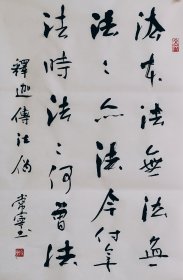 法本法無法無
法〻亦法今付無
法時法〻何曾法
釋迦傳法偈 常